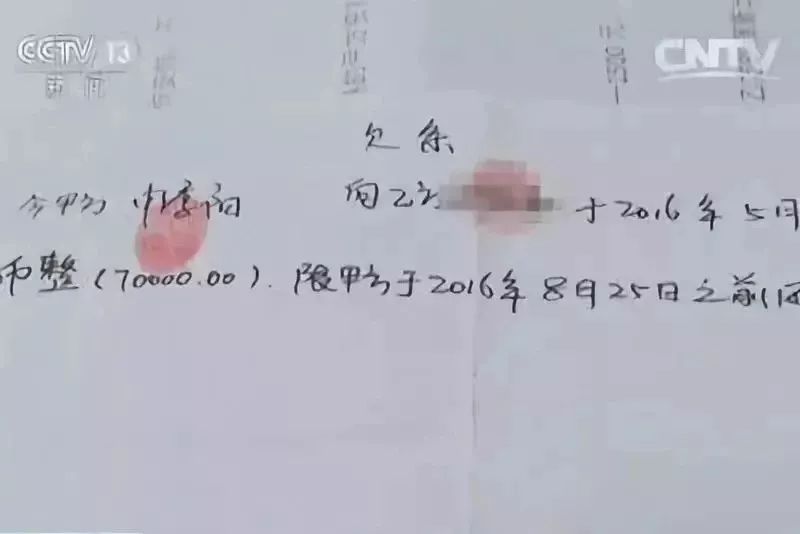 CCTV 13
新闻
CNTV
欠条
今甲方 中李阳 向乙方 于2016年5月
币整(70000.00). 限甲方于2016年8月25日之前